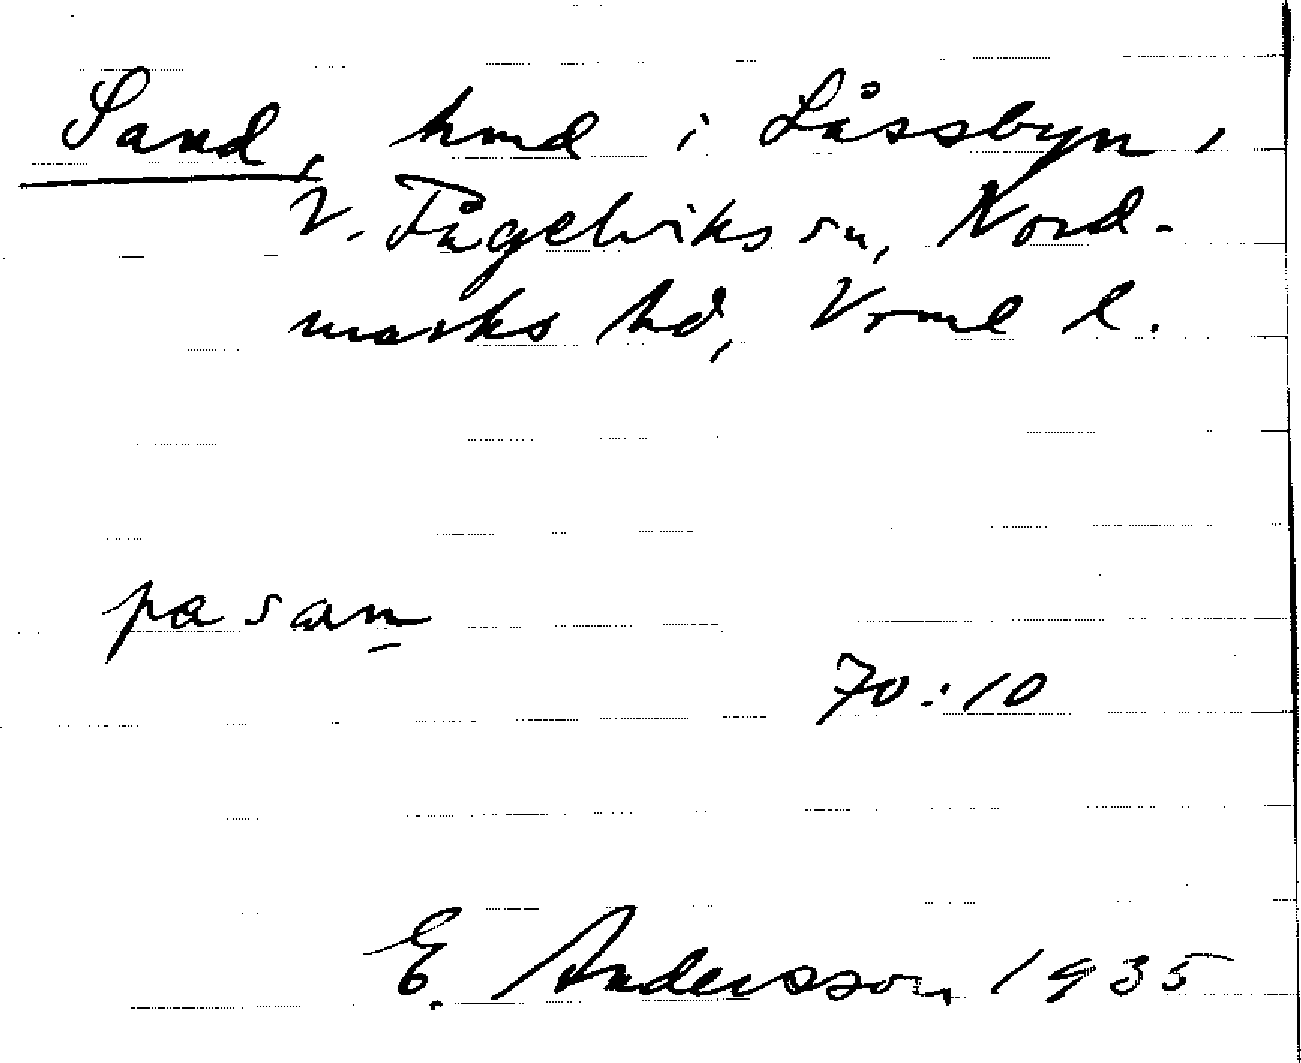 Sand, hmd i Låssbyn,
V. Fågelviks sn, Nord-
marks hd, Vrml l.
pa san
70:10
E. Andersson 1935